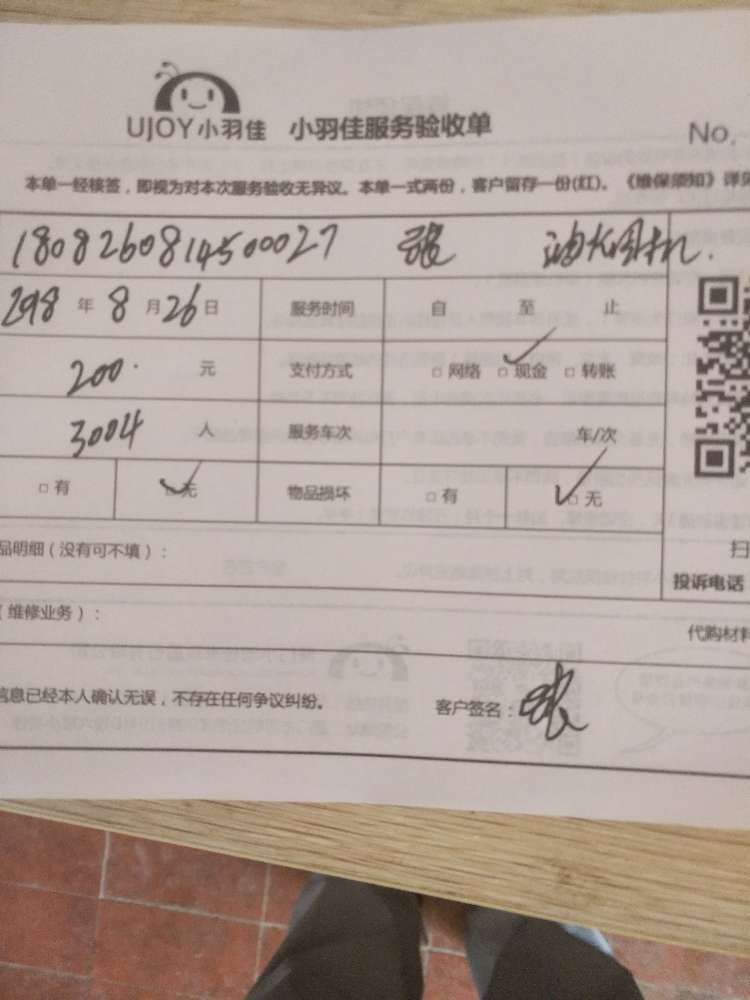 UJOY小羽佳 小羽佳服务验收单
No.
本单一经核签，即视为对本次服务验收无异议。本单一式两份，客户留存一份(红)。《维保须知》详见
1808260814500027 张 油烟机.
2018年8月26日 服务时间 自 至 止
200. 元 支付方式 □网络 □现金 □转账
3004 人 服务车次 车/次
□有 □无 物品损坏 □有 □无
品明细（没有可不填）：
扫
投诉电话
（维修业务）：
代购材料
信息已经本人确认无误，不存在任何争议纠纷。 客户签名：张